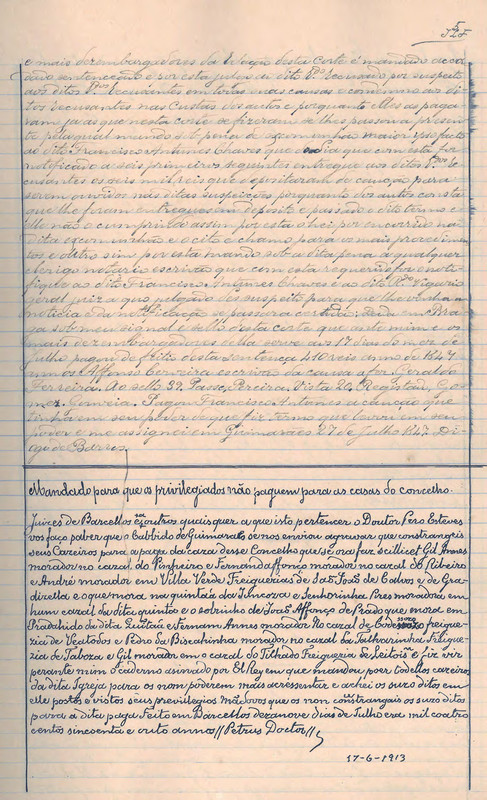 e mais dezembargadores da Relação desta Corte é mandado
sado sentenceação e por esta julgo ao dito por suspeito
aos ditos Recusantes em todas nas causas e condemno aos di
tos Recusantes nas custas dos autos e porquanto elles as paga
ram ja as que nesta corte se fizeram se lhes passou a presen
te pela qual mando sob pena de excomunhão maior ipso facto
ao dito Francisco Antunes Chaves que dia que com esta for
notificado aos seis primeiros seguintes entregue aos ditos
cusantes os seis mil reis que depositaram de caução para
serem ouvidos nas ditas suspeições porquanto dos autos consta
que lhe foram entregues em deposito e passado o dito termo e
elle não o cumprindo assim por esta o hei por encorrido na
dita excomunhão e o cito e chamo para os mais procedimen
tos e outro sim por esta mando sob a dita pena a qualquer
clerigo notario escrivão que com esta requerido for noti
fique ao dito Francisco Antunes Chaves e ao dito Rdo Vigario
geral juiz a quo relação das suspeito para que lhe venha a
noticia e da notificação se passara certidão. Dada em Bra
ga sob meu signal e sello desta corte que ante mim e os
mais dezembargadores della serve aos 17 dias do mez de
Julho pagou de feitio desta sentença 410 reis anno de 1647
annos Affonso Cerveira escrivão da causa a fez. Geraldo
Ferreira. Ao sello 32. Passe, Pereira. Vista 24. Registad, Go
mez. Gouveia. Pagou Francisco Antunes a caução que
tinha em seu poder do que fiz termo que lavrei em seu
poder e me assignei em Guimarães 27 de Julho 1647. Di
ogo de Barros
Mandado para que os privilegiados não paguem para as casas do concelho.
Juices de Barcellos e outros quaisquer a que isto pertencer o Doutor Pero Esteves
vos faço saber que o Cabbido de Guimarais se nos enviou agravar que constrangeis
seus Caseiros para a paga da caza desse Concelho que se ora faz scillicet Gil Annes
morador no cazal do Pinheiro e Fernand'Affonço morador no cazal do Ribeiro
e André morador em Villa Verde Freiguezias de Saõ Joaõ de Calvos e de Gra
dizella e o que mora na quintãa da Junçoza e Senhorinha Pires moradora em
hum cazal da dita quinta e o sobrinho de Joaõ Affonço de Prado que mora em
Pradinho da dita Quitãa e Fernam Annes morador no cazal de freigue
zia de Veatodos e Pedro da Biscahinha morador no cazal da Talharinha Freigue
zia de Taboza e Gil morador em o cazal do Tilhado Freiguezia de Leitois e fiz vir
perante mim o caderno asinado por El Rey em que mandou poer todollos cazeiros
da dita Igreja para os nom poderem mais acresentar e achei os suzo ditos em
elle postos e vistos seus previllegios mãdovos que os nom constrangais os suzo ditos
para a dita paga Feito em Barcellos dezanove dias de Julho era mil coatro
centos sincoenta e outo annos // Petrus Doctor //
17-6-1913